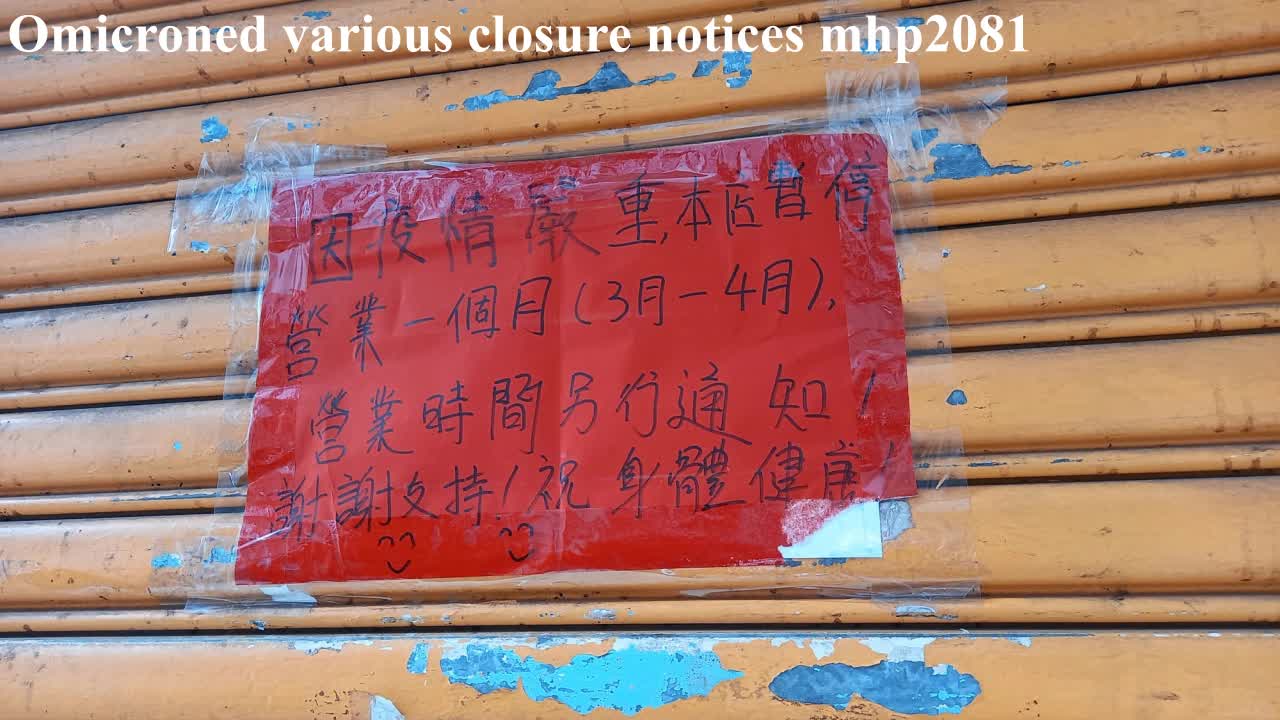 Omicroned various closure notices mhp2081
因疫情嚴重,本店暫停
營業一個月(3月-4月),
營業時間另行通知!
謝謝支持!祝身體健康!